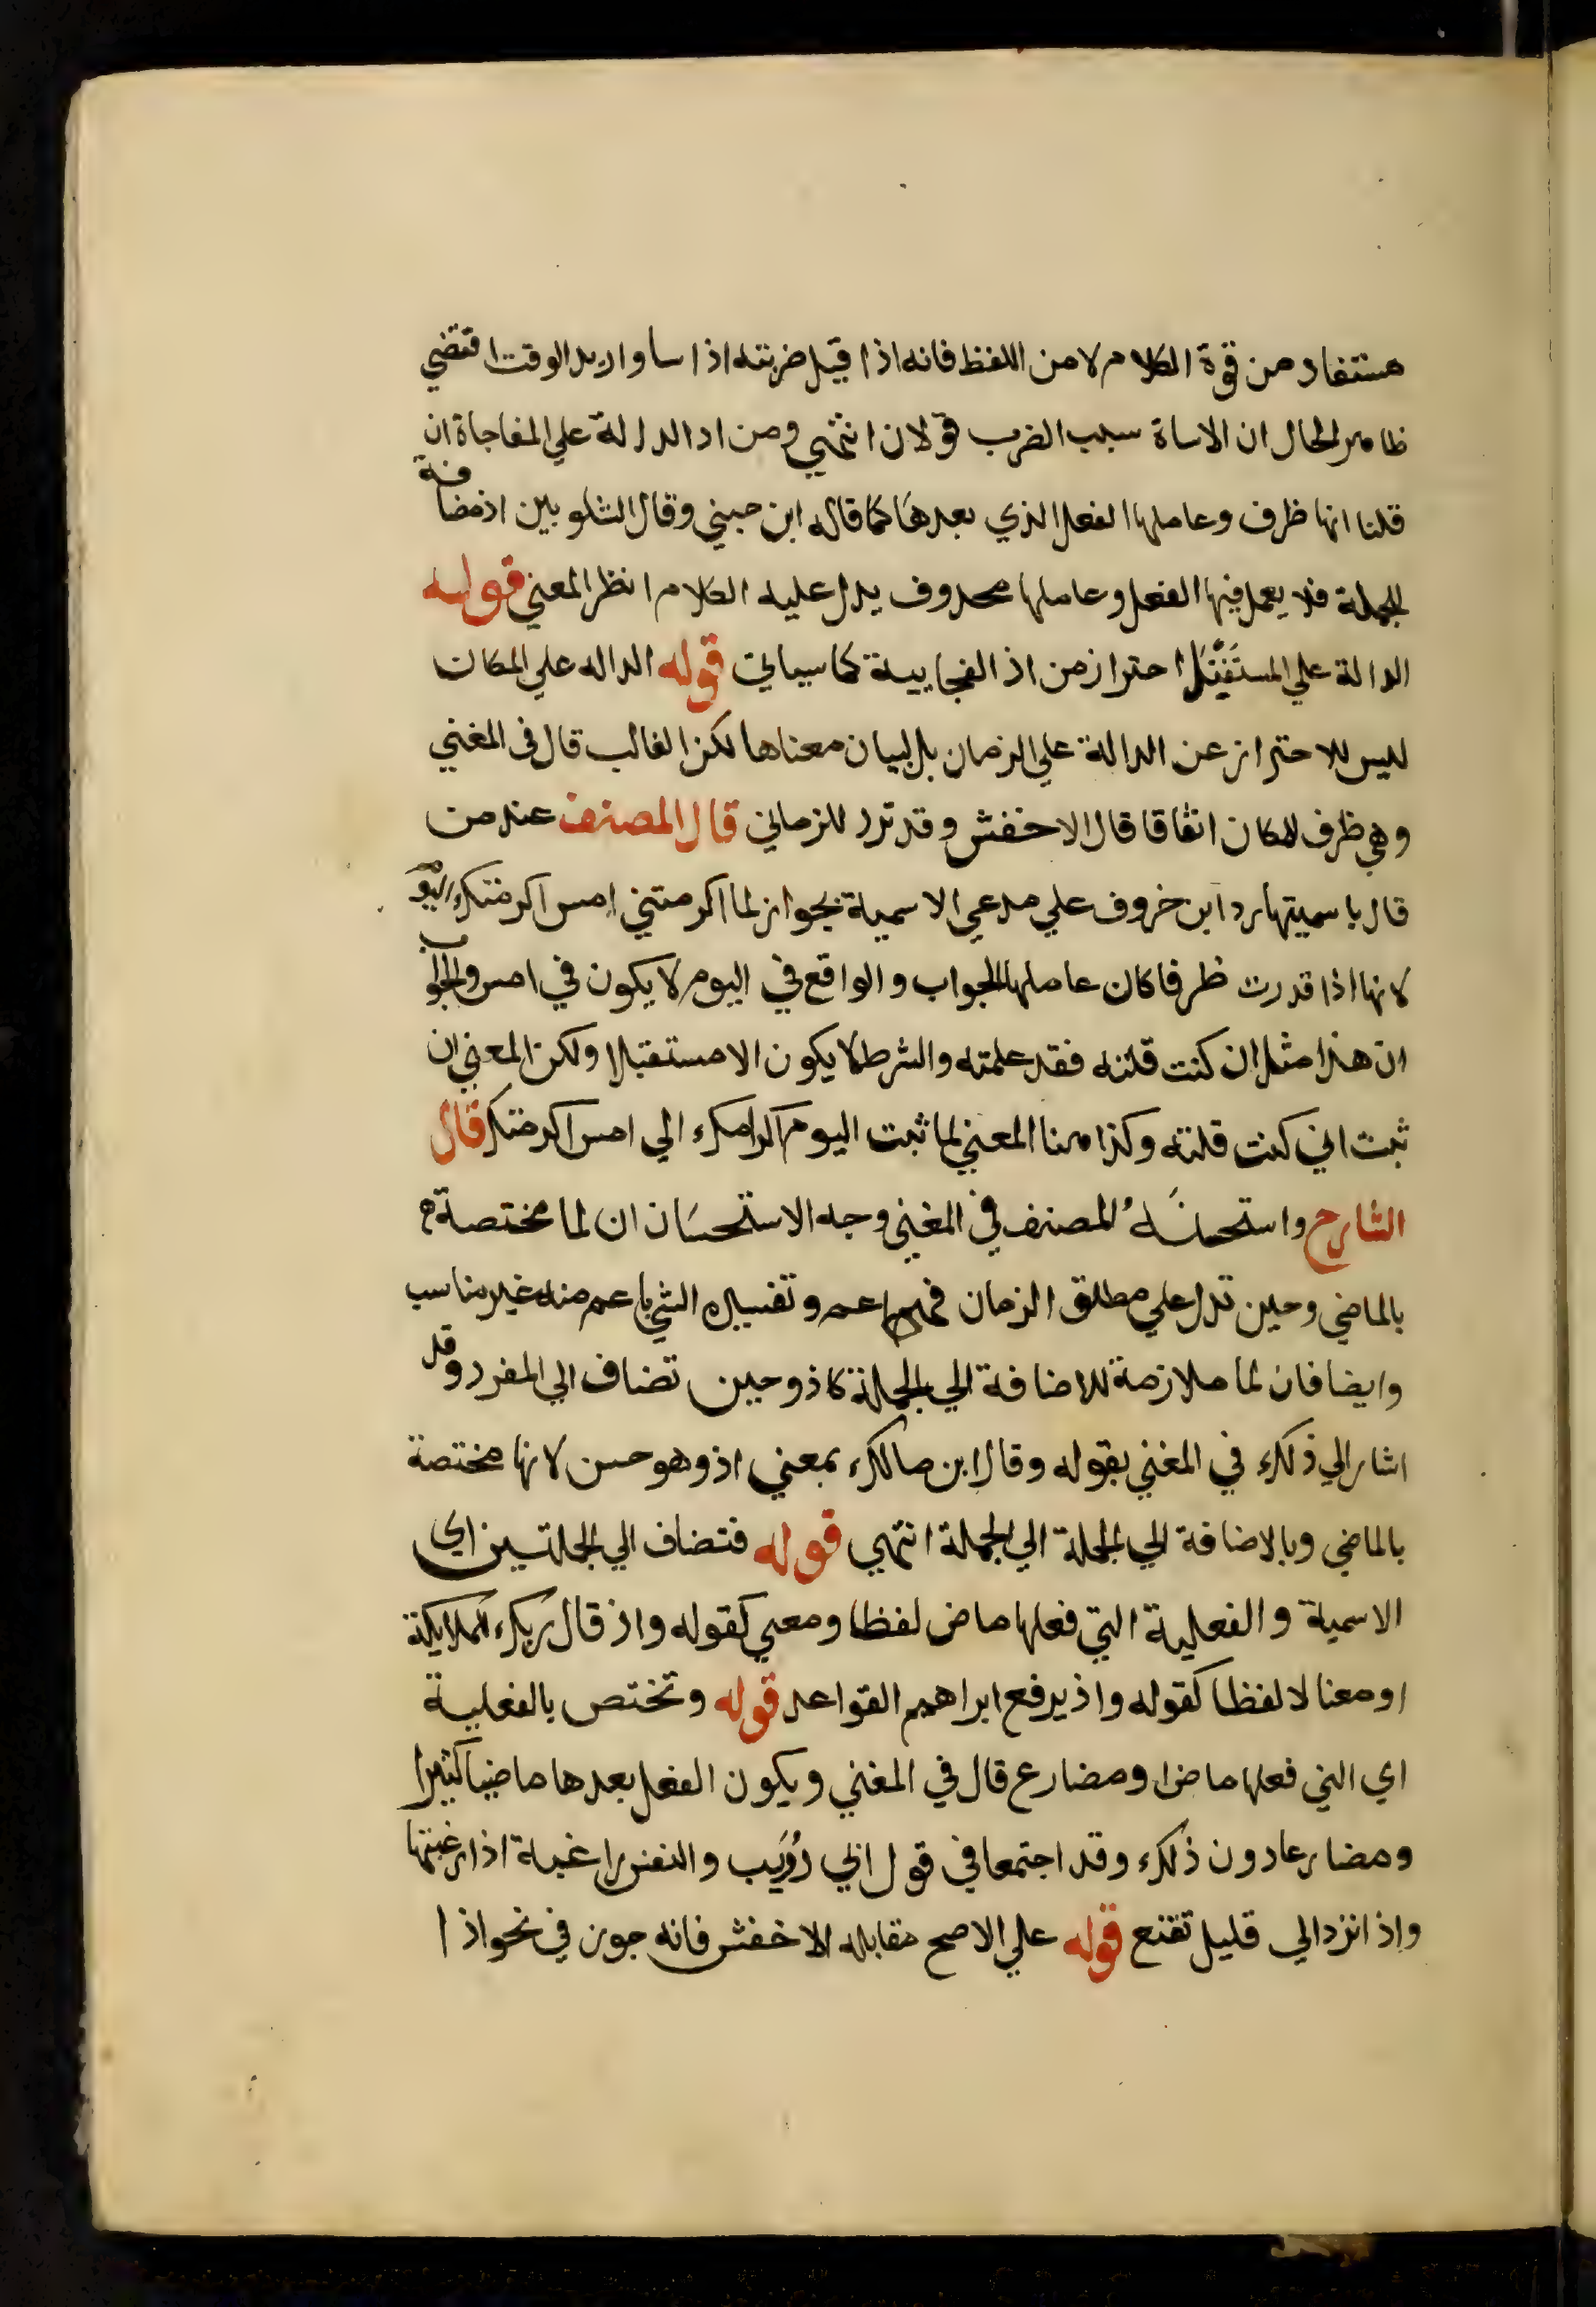 مستفاد من قوة الكلام لا من اللفظ فانه اذا قيل ضربته اذ اسا واريد الوقت اقتضي
ظاهر الحال ان الاساة سبب الضرب قولان انتهي ومن اد الدلالة علي المفاجاة ان
قلنا انها ظرف وعاملها الفعل الذي بعدها كما قاله ابن جني وقال الشلوبين اذ مضافة
للجملة فلا يعمل فيها الفعل وعاملها محذوف يدل عليه الكلام انظر المعني قوله
الدالة علي المستقبل احتراز من اذ الفجاييه كما سياتي قوله الداله علي المكان
ليس للاحتراز عن الدالة علي الزمان بل لبيان معناها لكن الغالب قال في المغني
وهي ظرف للمكان اتفاقا قال الاخفش وقد ترد للزماني قال المصنف عند من
قال باسميتها رد ابن خروف علي مدعي الاسمية بجواز لما اكرمتني امس اكرمتك اليوم
لانها اذا قدرت ظرفا كان عاملها الجواب والواقع في اليوم لا يكون في امس والجواب
ان هذا مثل ان كنت قلته فقد علمته والشرط لا يكون الا مستقبلا ولكن المعني ان
ثبت اني كنت قلته وكذا هنا المعني لما ثبت اليوم اكرامك الي امس اكرمتك قال
الشارح واستحسنه المصنف في المغني وجه الاستحسان ان لما مختصة
بالماضي وحين تدل علي مطلق الزمان فهي اعم وتفسير الشي باعم منه غير مناسب
وايضا فان لما ملازمة للاضافة الي الجملة كاذ وحين تضاف الي المفرد وقد
اشار الي ذلك في المغني بقوله وقال ابن مالك بمعني اذ وهو حسن لانها مختصة
بالماضي وبالاضافة الي الجملة الي الجملة انتهي قوله فتضاف الي الجملتين اي
الاسمية والفعلية التي فعلها ماض لفظا ومعني كقوله واذ قال ربك للملايكة
او معنا لا لفظا كقوله واذ يرفع ابراهيم القواعد قوله وتختص بالفعلية
اي التي فعلها ماض او مضارع قال في المغني ويكون الفعل بعدها ماضيا كثيرا
ومضارعا دون ذلك وقد اجتمعا في قول ابي ذؤيب والنفس راغبة اذا رغبتها
واذا ترد الي قليل تقنع قوله علي الاصح مقابله الاخفش فانه جوز في نحو اذا